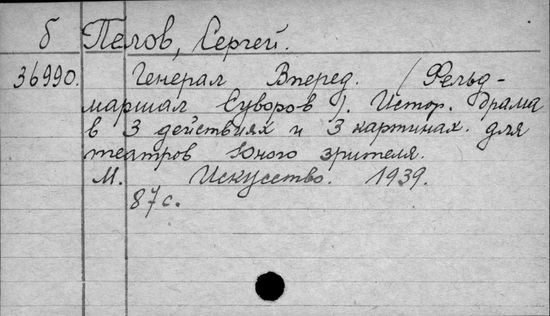 б Пелов, Сергей.
36990. Генерал Вперед. (Фельд-
маршал Суворов). Истор. драма
в 3 действиях и 3 картинах. для
театров юного зрителя.
М. Искусство. 1939.
87 с.